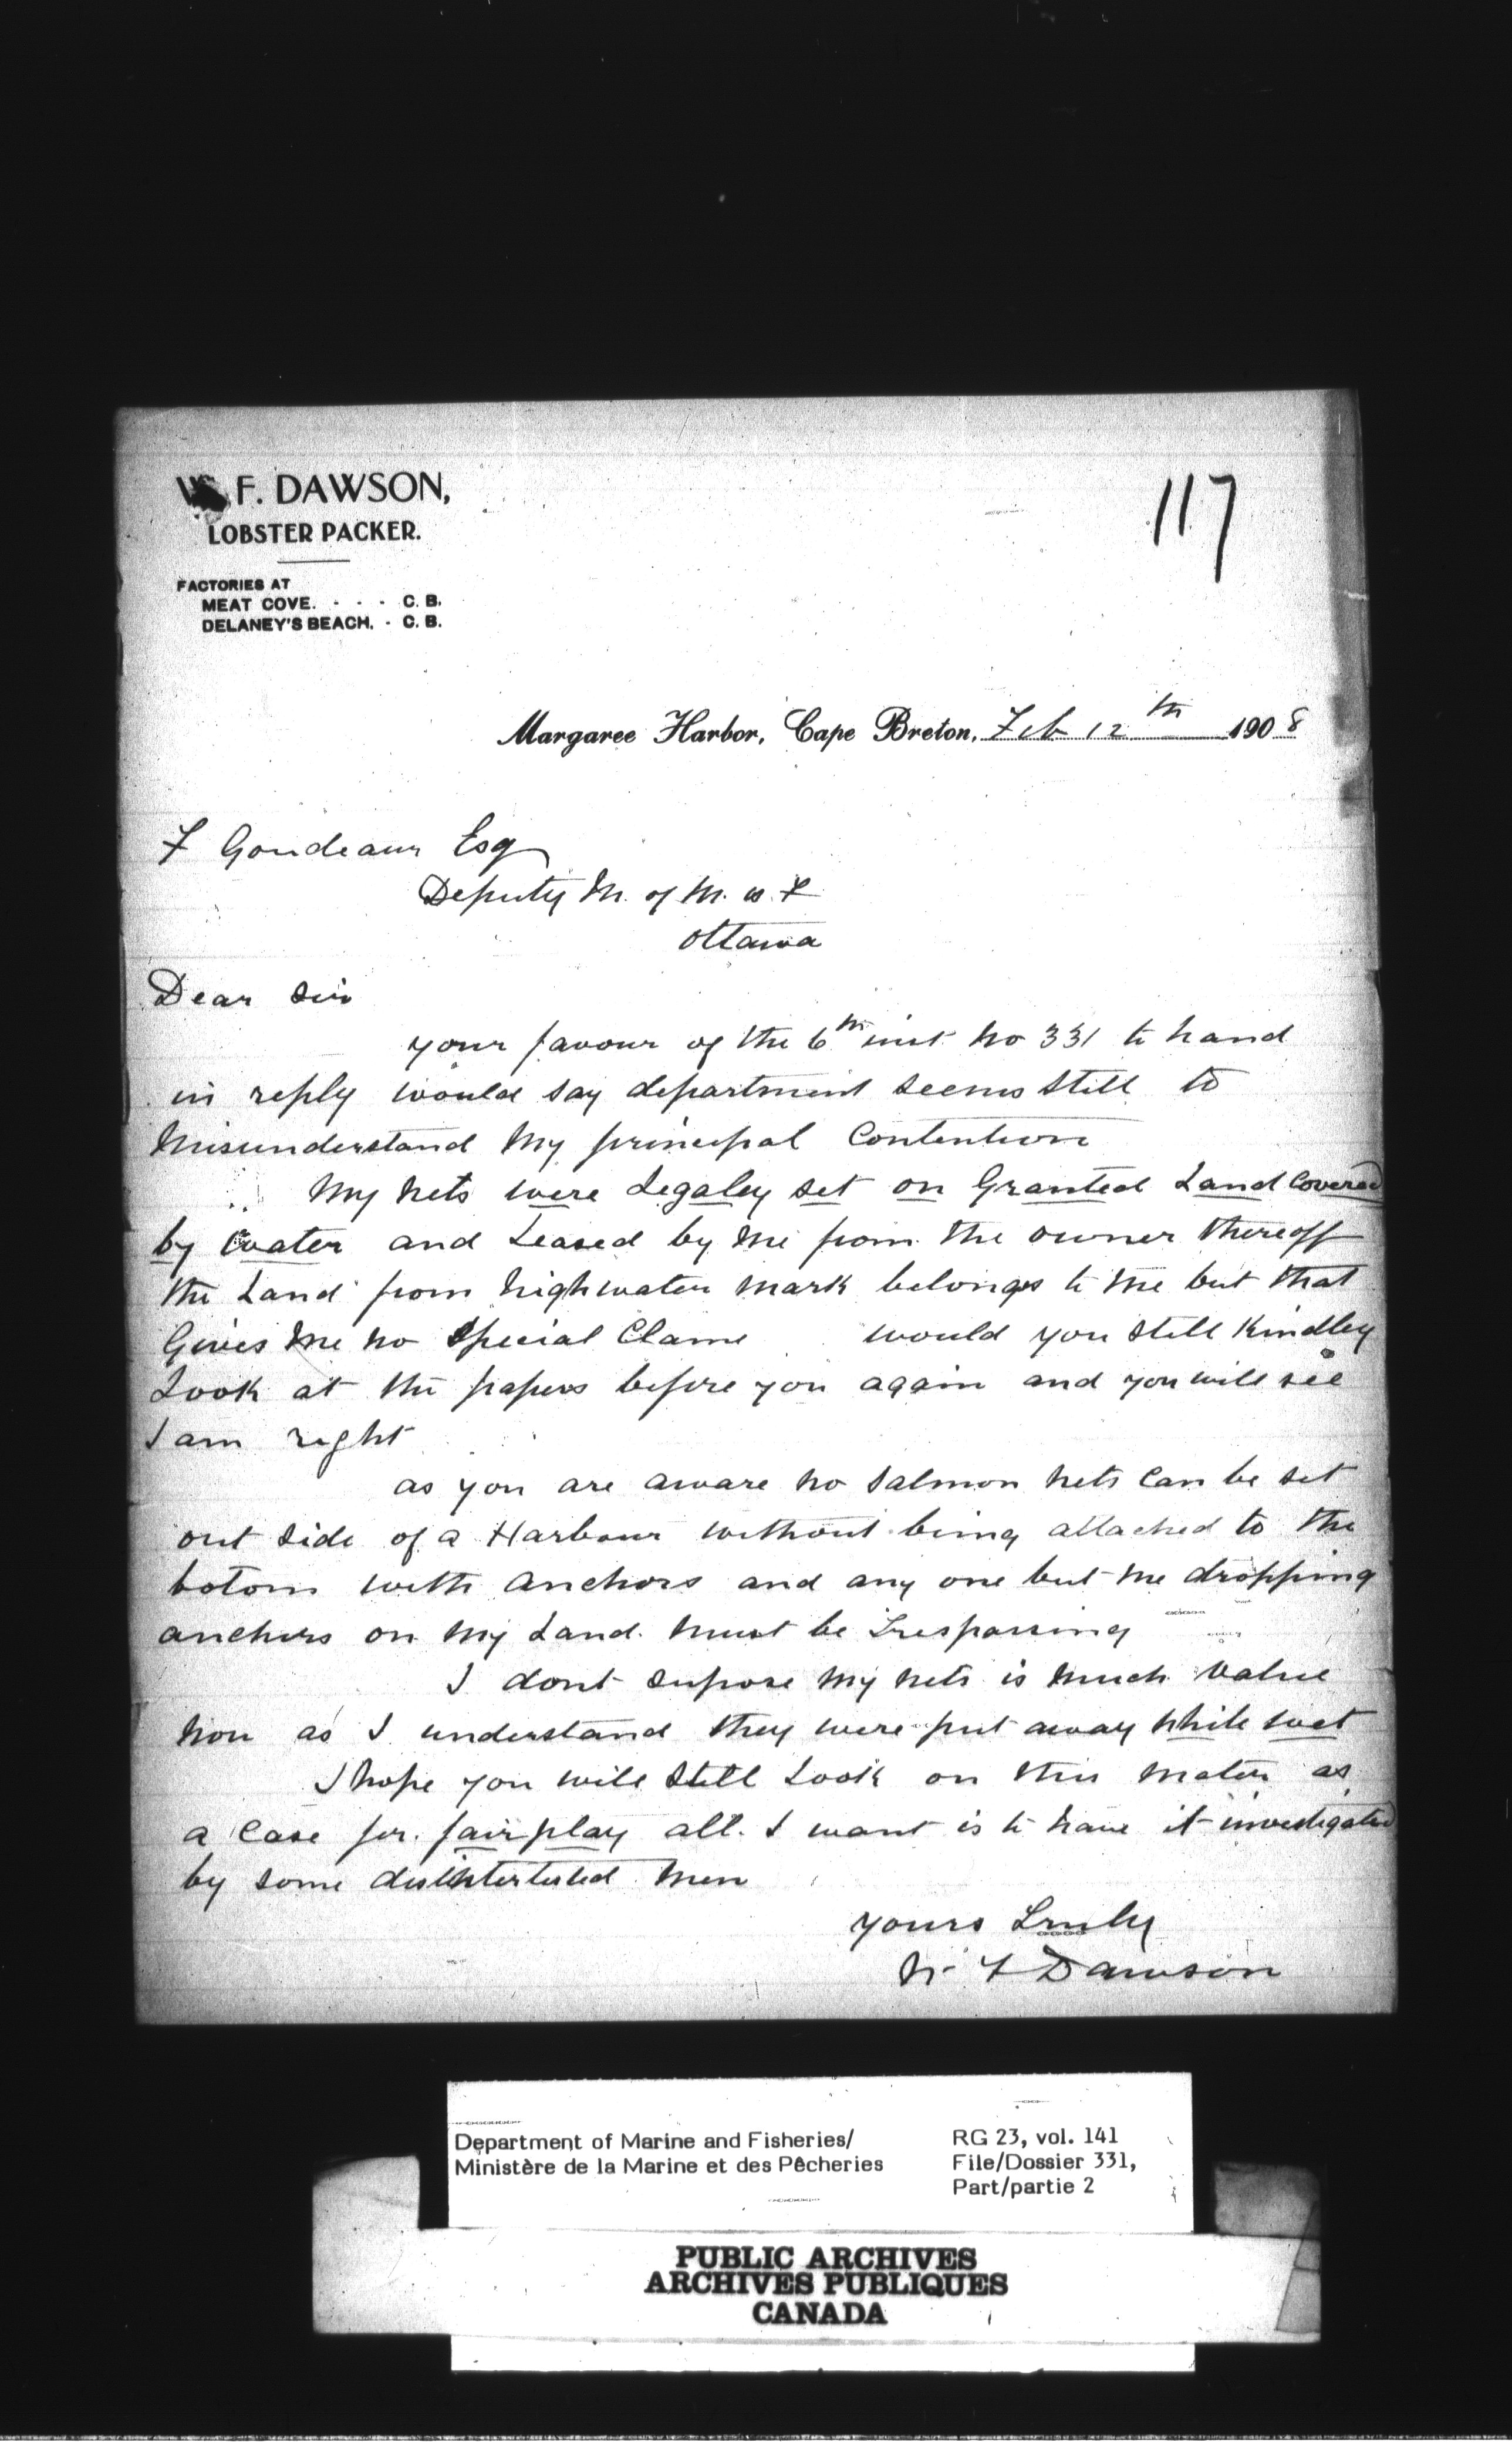 F. DAWSON,
LOBSTER PACKER.
FACTORIES AT
MEAT COVE. - - - C. B.
DELANEY'S BEACH. - C. B.
117
Margaree Harbor, Cape Breton, Feb 12th 1908
F Goudeaur Esq
Deputy M. of M. & F
Ottawa
Dear Sir
your favour of the 6th inst No 331 to hand
in reply would say department seems still to
Misunderstand My principal Contention
My Nets were Legaley set on Granted Land Covered
by Water and Leased by Me from the owner thereoff
the Land from highwater Mark belongs to Me but that
Gives Me No Special Clame would you still Kindley
Look at the papers before you again and you will see
I am right
as you are aware No Salmon Nets Can be set
out side of a Harbour without being attached to the
botom with Anchors and any one but Me dropping
anchors on My Land Must be Trespassing
I dont supose My Nets is Much Value
Now as I understand they were put away While wet
I hope you will Still Look on this Mater as
a Case for fairplay all I want is to have it investigated
by some Men
yours Truly
W F Dawson
Department of Marine and Fisheries/
Ministère de la Marine et des Pêcheries
RG 23, vol. 141
File/Dossier 331,
Part/partie 2
PUBLIC ARCHIVES
ARCHIVES PUBLIQUES
CANADA